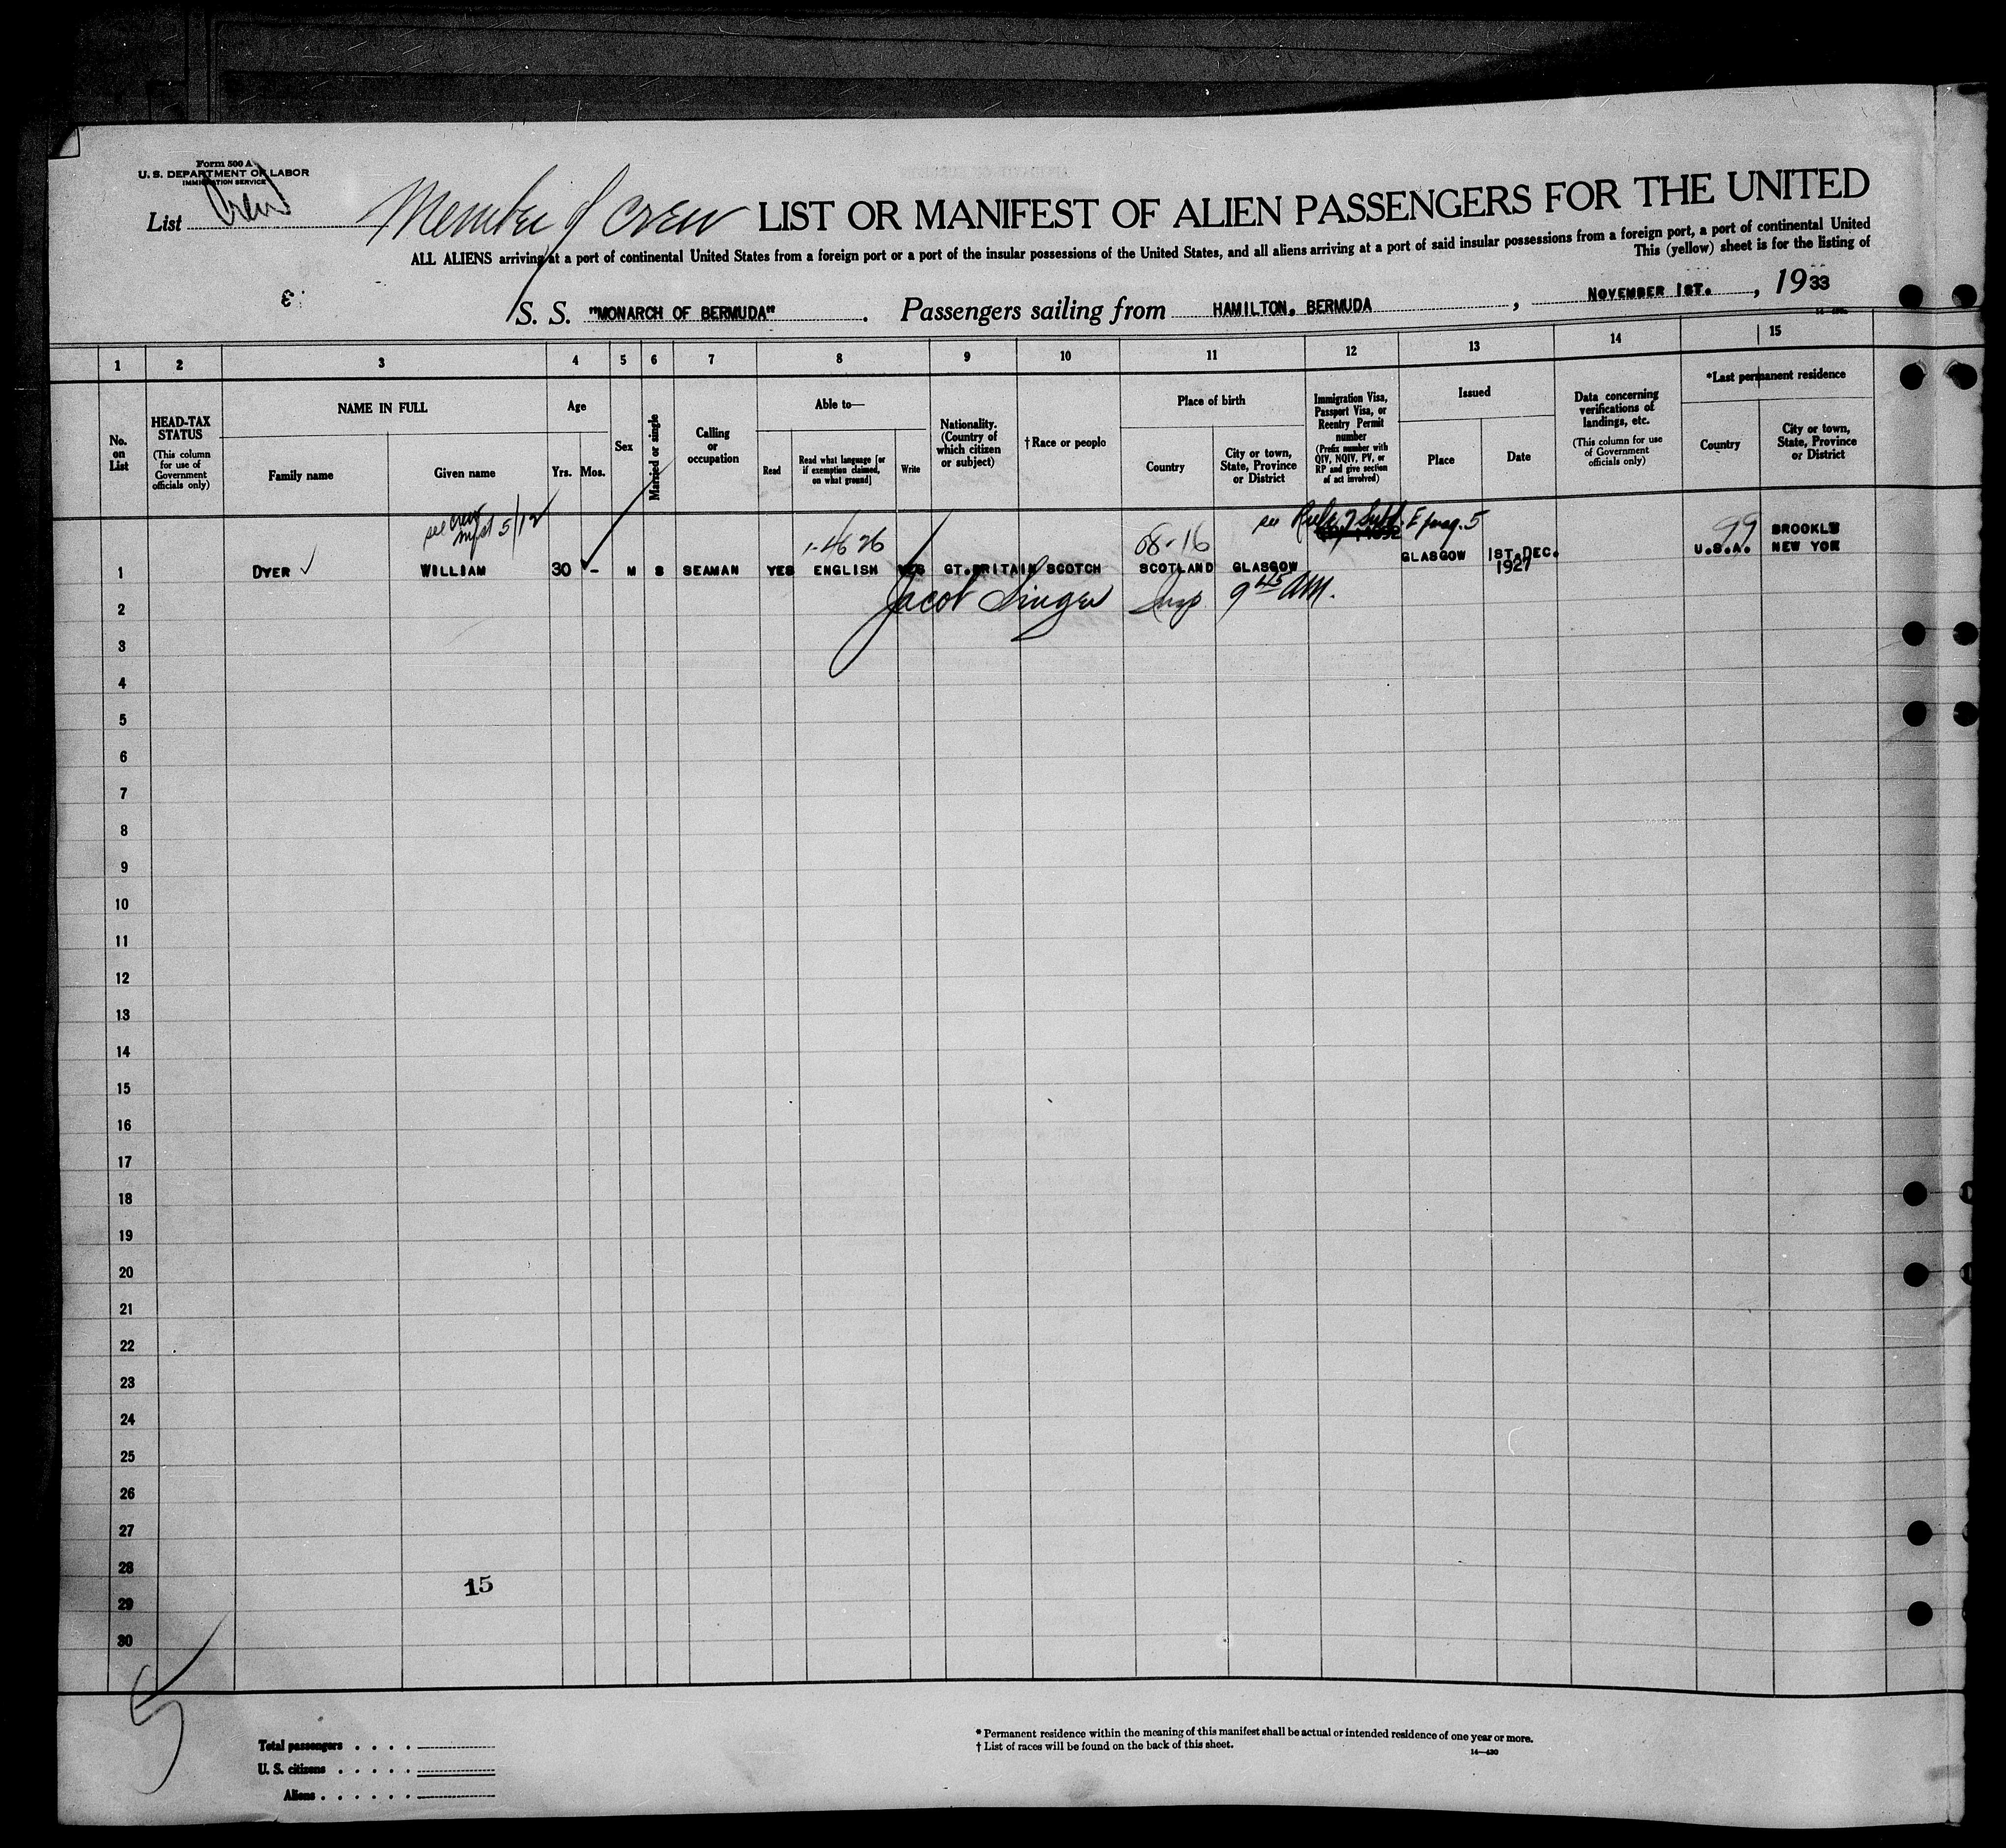 Form 500 A
U. S. DEPARTMENT OF LABOR
IMMIGRATION SERVICE
List Crew
Member of Crew LIST OR MANIFEST OF ALIEN PASSENGERS FOR THE UNITED
ALL ALIENS arriving at a port of continental United States from a foreign port or a port of the insular possessions of the United States, and all aliens arriving at a port of said insular possessions from a foreign port, a port of continental United
This (yellow) sheet is for the listing of
S. S. "MONARCH OF BERMUDA". Passengers sailing from HAMILTON. BERMUDA, NOVEMBER 1ST., 1933
1 2 3 4 5 6 7 8 9 10 11 12 13 14 15
No. on List
HEAD-TAX STATUS
(This column for use of Government officials only)
NAME IN FULL
Family name
Given name
Age
Yrs. Mos.
Sex
Married or single
Calling or occupation
Able to—
Read
Read what language [or if exemption claimed, on what ground]
Write
Nationality. (Country of which citizen or subject)
†Race or people
Place of birth
Country
City or town, State, Province or District
Immigration Visa, Passport Visa, or Reentry Permit number
(Prefix number with QIV, NQIV, PV, or RP and give section of act involved)
Issued
Place
Date
Data concerning verifications of landings, etc.
(This column for use of Government officials only)
*Last permanent residence
Country
City or town, State, Province or District
see crew mfst 5/12
see Rule 7 Subd. E parag. 5
1-4626
68-16
99
1 DYER WILLIAM 30 - M S SEAMAN YES ENGLISH YES GT.BRITAIN SCOTCH SCOTLAND GLASGOW GLASGOW 1ST.DEC. 1927 U.S.A. BROOKLY NEW YOR
Jacob Singer Insp 9 45 AM.
2
3
4
5
6
7
8
9
10
11
12
13
14
15
16
17
18
19
20
21
22
23
24
25
26
27
28
29
30
15
5
Total passengers . . . .
U. S. citizens . . . . .
Aliens . . . . . .
* Permanent residence within the meaning of this manifest shall be actual or intended residence of one year or more.
† List of races will be found on the back of this sheet.
14—430